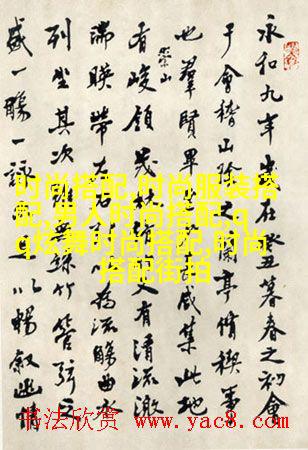 永和九年歲在癸丑暮春之初會
于會稽山陰之蘭亭脩禊事
也羣賢畢咸集此地
有崇山峻領茂又有清流激
湍暎帶左右為流觴曲水
列坐其次絲竹管弦之
盛一觴一詠以暢敘幽情
时尚搭配,时尚服装搭
配,男人时尚搭配,q
q炫舞时尚搭配,时尚
搭配街拍
书法欣赏 www.yac8.com